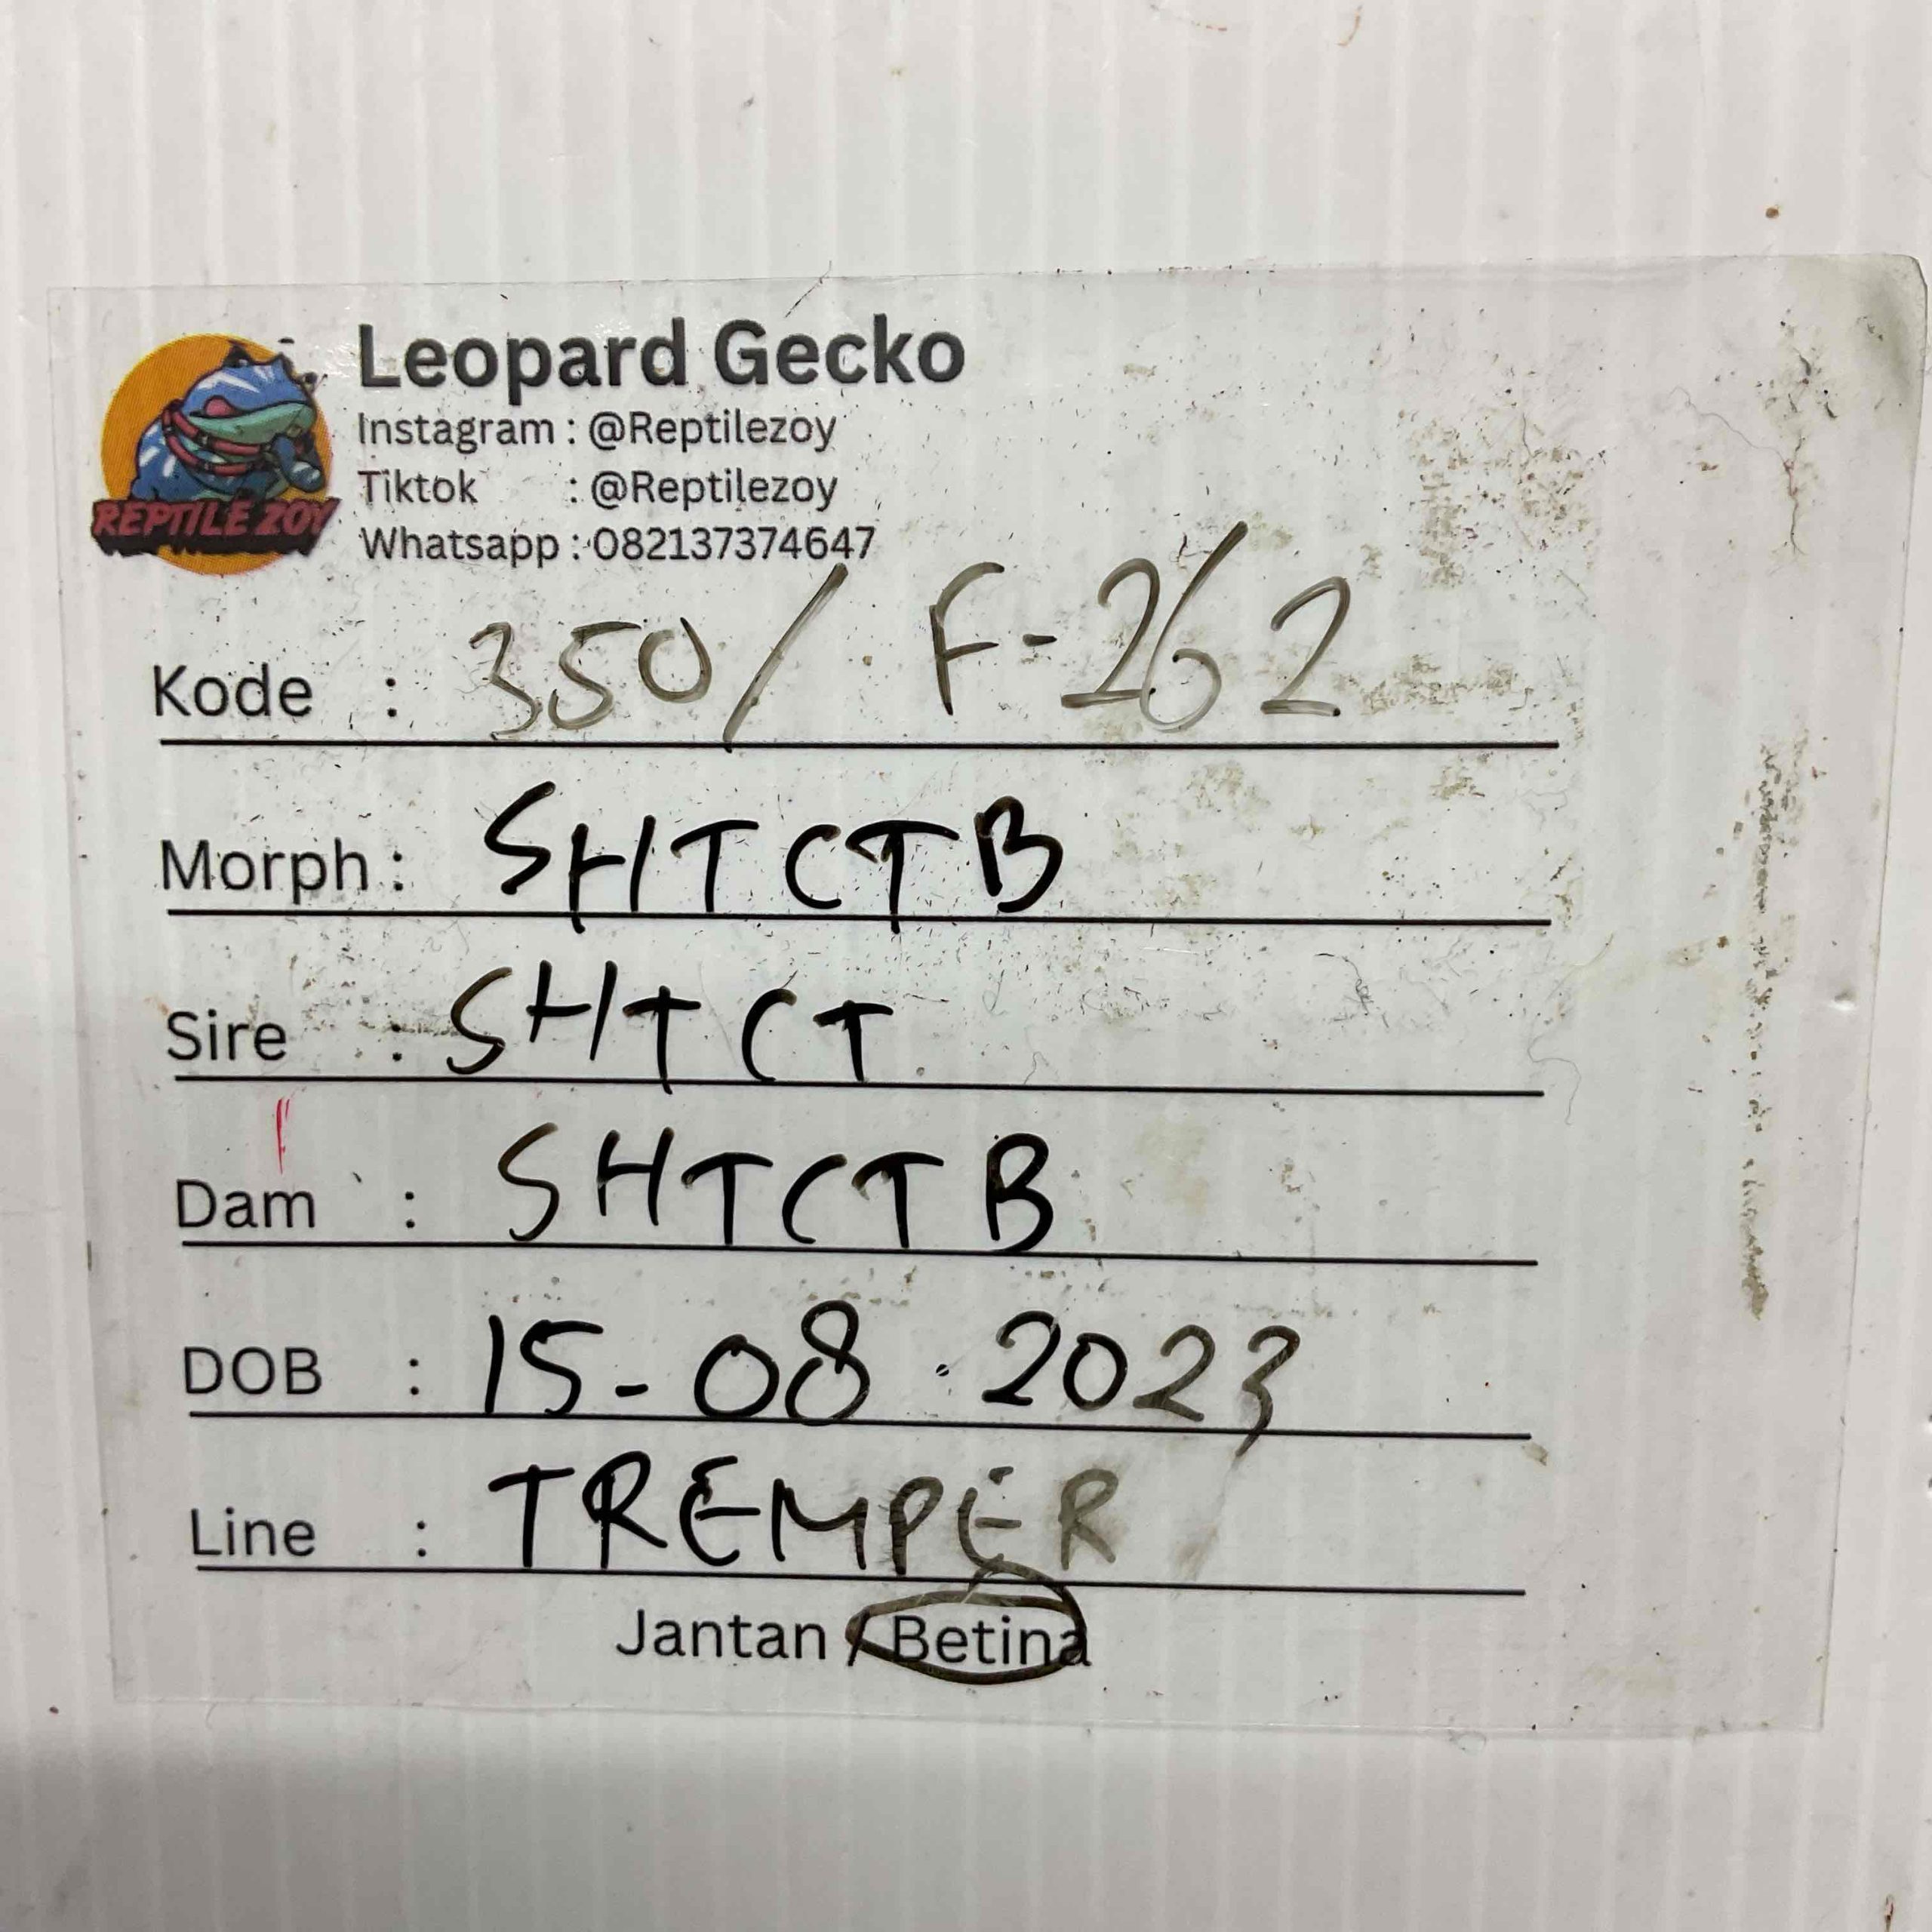 Leopard Gecko
Instagram : @Reptilezoy
Tiktok : @Reptilezoy
Whatsapp : 082137374647
REPTILE ZOY
Kode : 350/ F-262
Morph : SHTCTB
Sire : SHTCT
Dam : SHTCTB
DOB : 15-08.2023
Line : TREMPER
Jantan / Betina